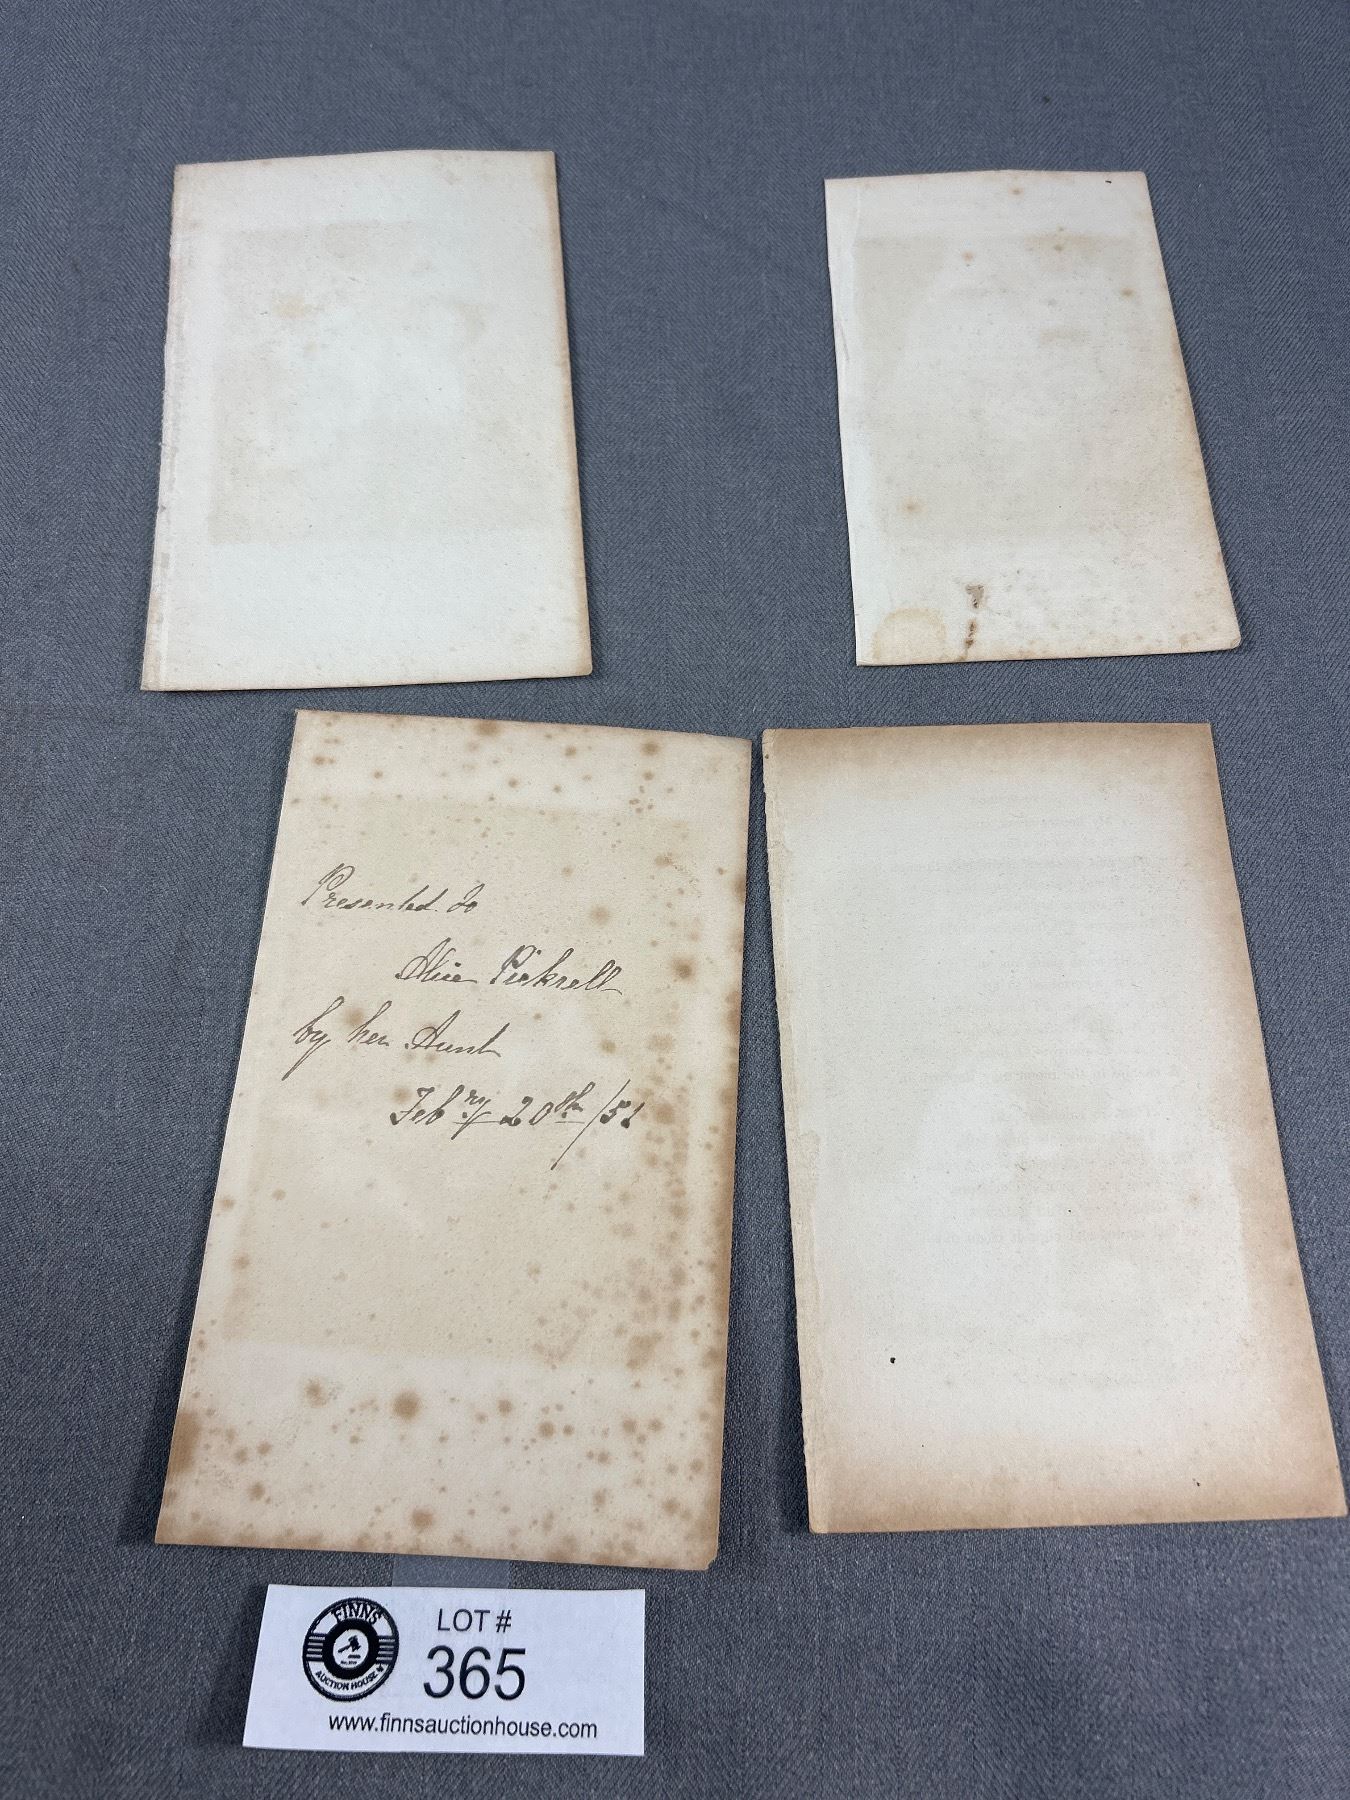 Presented to
Alice Pickrell
by her Aunt
Feb ry 20th /51
FINNS
AUCTION HOUSE
LOT #
365
www.finnsauctionhouse.com